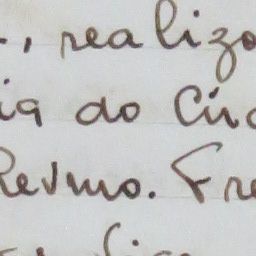 ., realizo
ia do Cir
Revmo. Fre